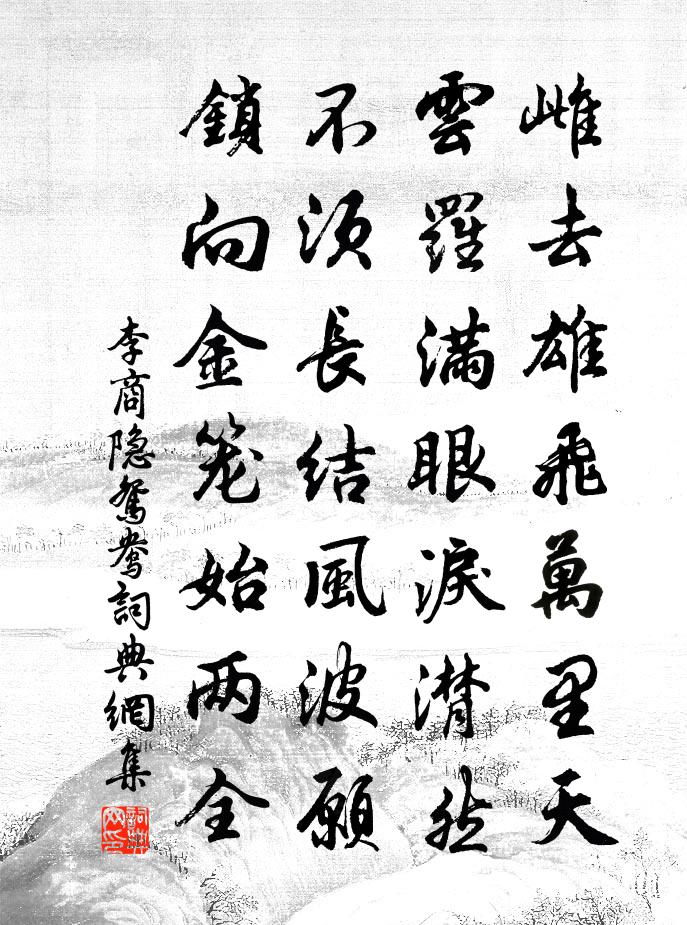 雌去雄飛萬里天
雲羅滿眼淚潸然
不須長結風波願
鎖向金笼始两全
李商隐鴛鴦詞典網集
詞典網印